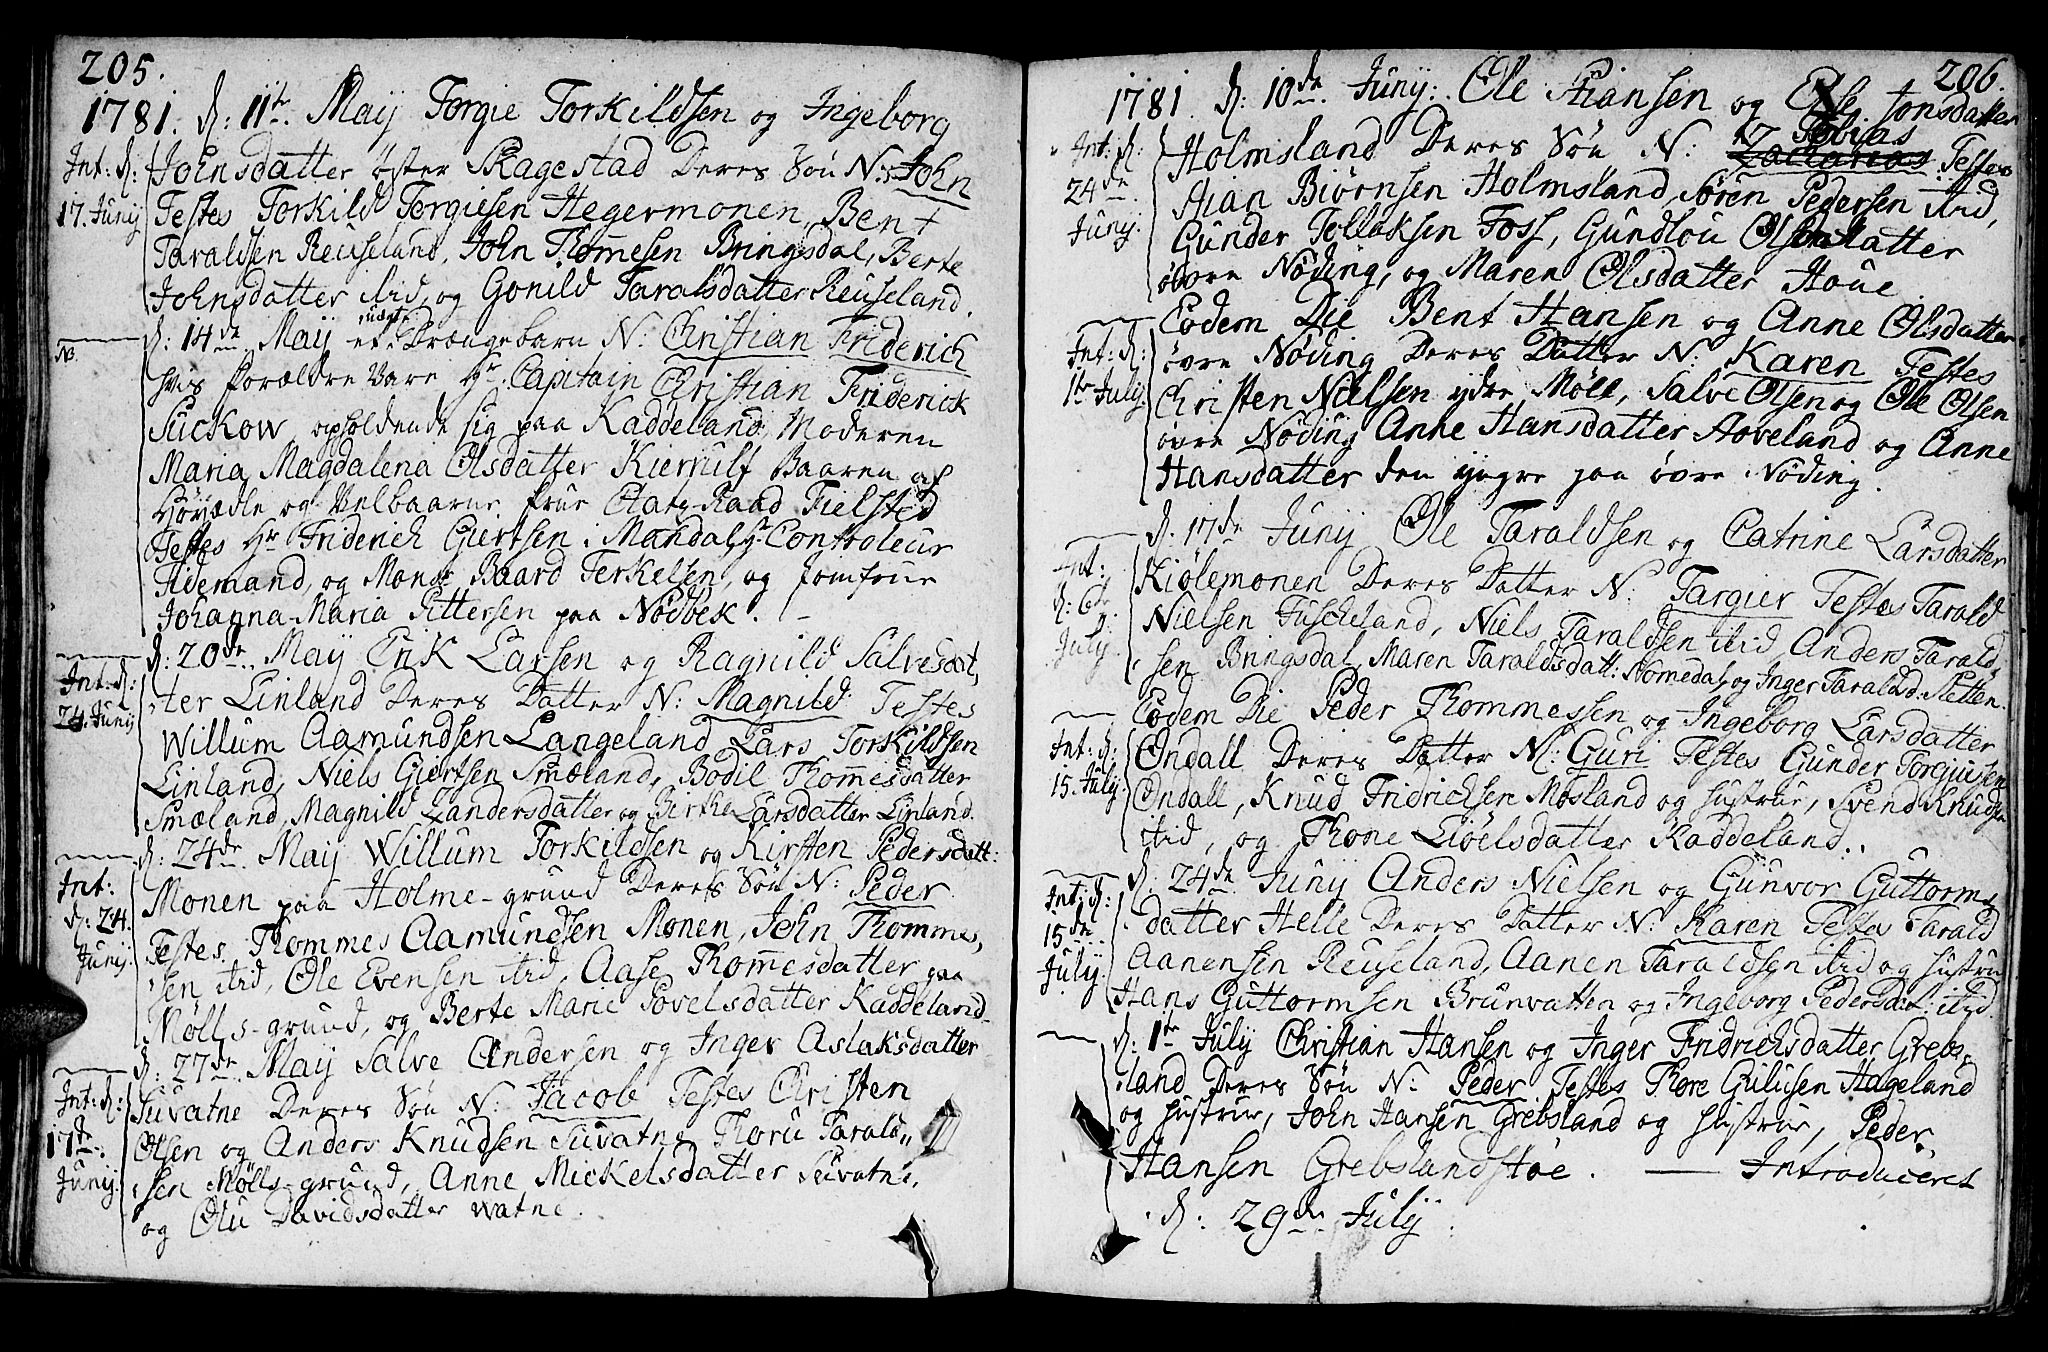 205.
1781. d: 11te May Torgie Torkildsen og Ingeborg
Int: d: Johnsdatter öster Skagestad Deres Sön N: John
17. Junij Testes Torkild Torgiesen Hegermonen, Bent
Taraldsen Reuseland, John Thomesen Bringsdal, Berte
Johnsdatter ibid, og Gonild Taralsdatter Reuseland.
d: 14de May et uægte Drængebarn N: Christian Friderich
No. hvis forældre vare Hr. Capitain Christian Friderick
Suckow, opholdende sig paa Kaddeland, Moderen
Maria Magdalena Olsdatter Kierulf Baaren af
Höyædle og Velbaarne frue Etatz-Raad Fielsted
Testes Hr Friderich Giertsen i Mandal, Hr. Controleur
Tidemand, og Mons. Baard Terkelsen, og Jomfrue
Johanna-Maria Pittersen paa Nödbek. –
d: 20de May Erik Larsen og Ragnild Salvesdat,
Int: d: ter Linland Deres Datter N: Magnild Testes
24. Junij Willum Aamundsen Langeland Lars Torkildsen
Linland, Niels Giertsen Smæland, Bodil Thomesdatter
Smæland, Magnild Zandersdatter og Birthe Larsdatter Linland.
d: 24de May Willum Torkildsen og Kirsten Pedersdatt:
Int: Monen paa Holme-grund Deres Sön N: Peder
d: 24. Testes, Thommes Aamundsen Monen, John Thommes,
Junij. sen ibid, Ole Evensen ibid, Aase Thomesdatter paa
Mölls-grund, og Berte Marie Povelsdatter Kaddeland.
d: 27de May Salve Andersen og Inger Aslaksdatter
Int: d: Suvatne Deres Sön N: Jacob Testes Christen
17de Olsen og Anders Knudsen Suvatne, Thoru Tarald,,
Junij. sen Mölls-grund, Anne Mickelsdatter Suvatne,
og Olu Davidsdatter Watne.
206.
1781 d: 10de Junij: Ole Stiansen og Else Jonsdatter
Int: d: Holmsland Deres Sön N: Tobias Zacharias Testes
24de Stian Biörnsen Holmsland, Sören Pedersen ibid,
Junij. Gunder Tollaksen Foss, Gundlou Olsdatter
övre Nöding, og Maren Olsdatter Houe
Eodem Die Bent Hansen og Anne Olsdatter
Int: d: övre Nöding Deres Datter N: Karen Testes
1te July. Christen Nielsen ydre Möll, Salve Olsen og Ole Olsen
övre Nöding Anne Hansdatter Aoveland og Anne
Hansdatter den yngre paa övre Nöding.
d. 17de Junij Ole Taraldsen og Catrine Larsdatter
Int: Kiölemonen Deres Datter N: Targier Testes Tarald
d: Nielsen Fuscheland, Niels Taraldsen ibid, Anders Tarald,
July sen Bringsdal, Maren Taraldsdatt: Nomedal, og Inger Taraldsd: Sletten.
Eodem Die Peder Thommessen og Ingeborg Larsdatter
Int: d: Öndall Deres Datter N: Guri Testes Gunder Torgiusen
15. July. Öndall, Knud Fridrichsen Mosland og Hustrue, Svend Knudsen
ibid, og Thone Lioelsdatter Kaddeland.
d: 24de Junij Anders Nielsen og Gunvor Guttorms,
Int: d: datter Helle Deres Datter N: Karen Testes Tarald
15de Aanensen Reuseland, Aanen Taraldsen ibid og Hustrue
July. Hans Guttormsen Brunvatten og Ingeborg Pedersdat: ibid.
d: 1te July Christian Hansen og Inger Fridrichsdatter Grebs,
land Deres Sön N: Peder Testes Thore Gulusen Hageland
og Hustrue, John Hansen Grebsland og Hustrue, Peder
Hansen Grebslandstöe. — Introduceret
d: 29de July